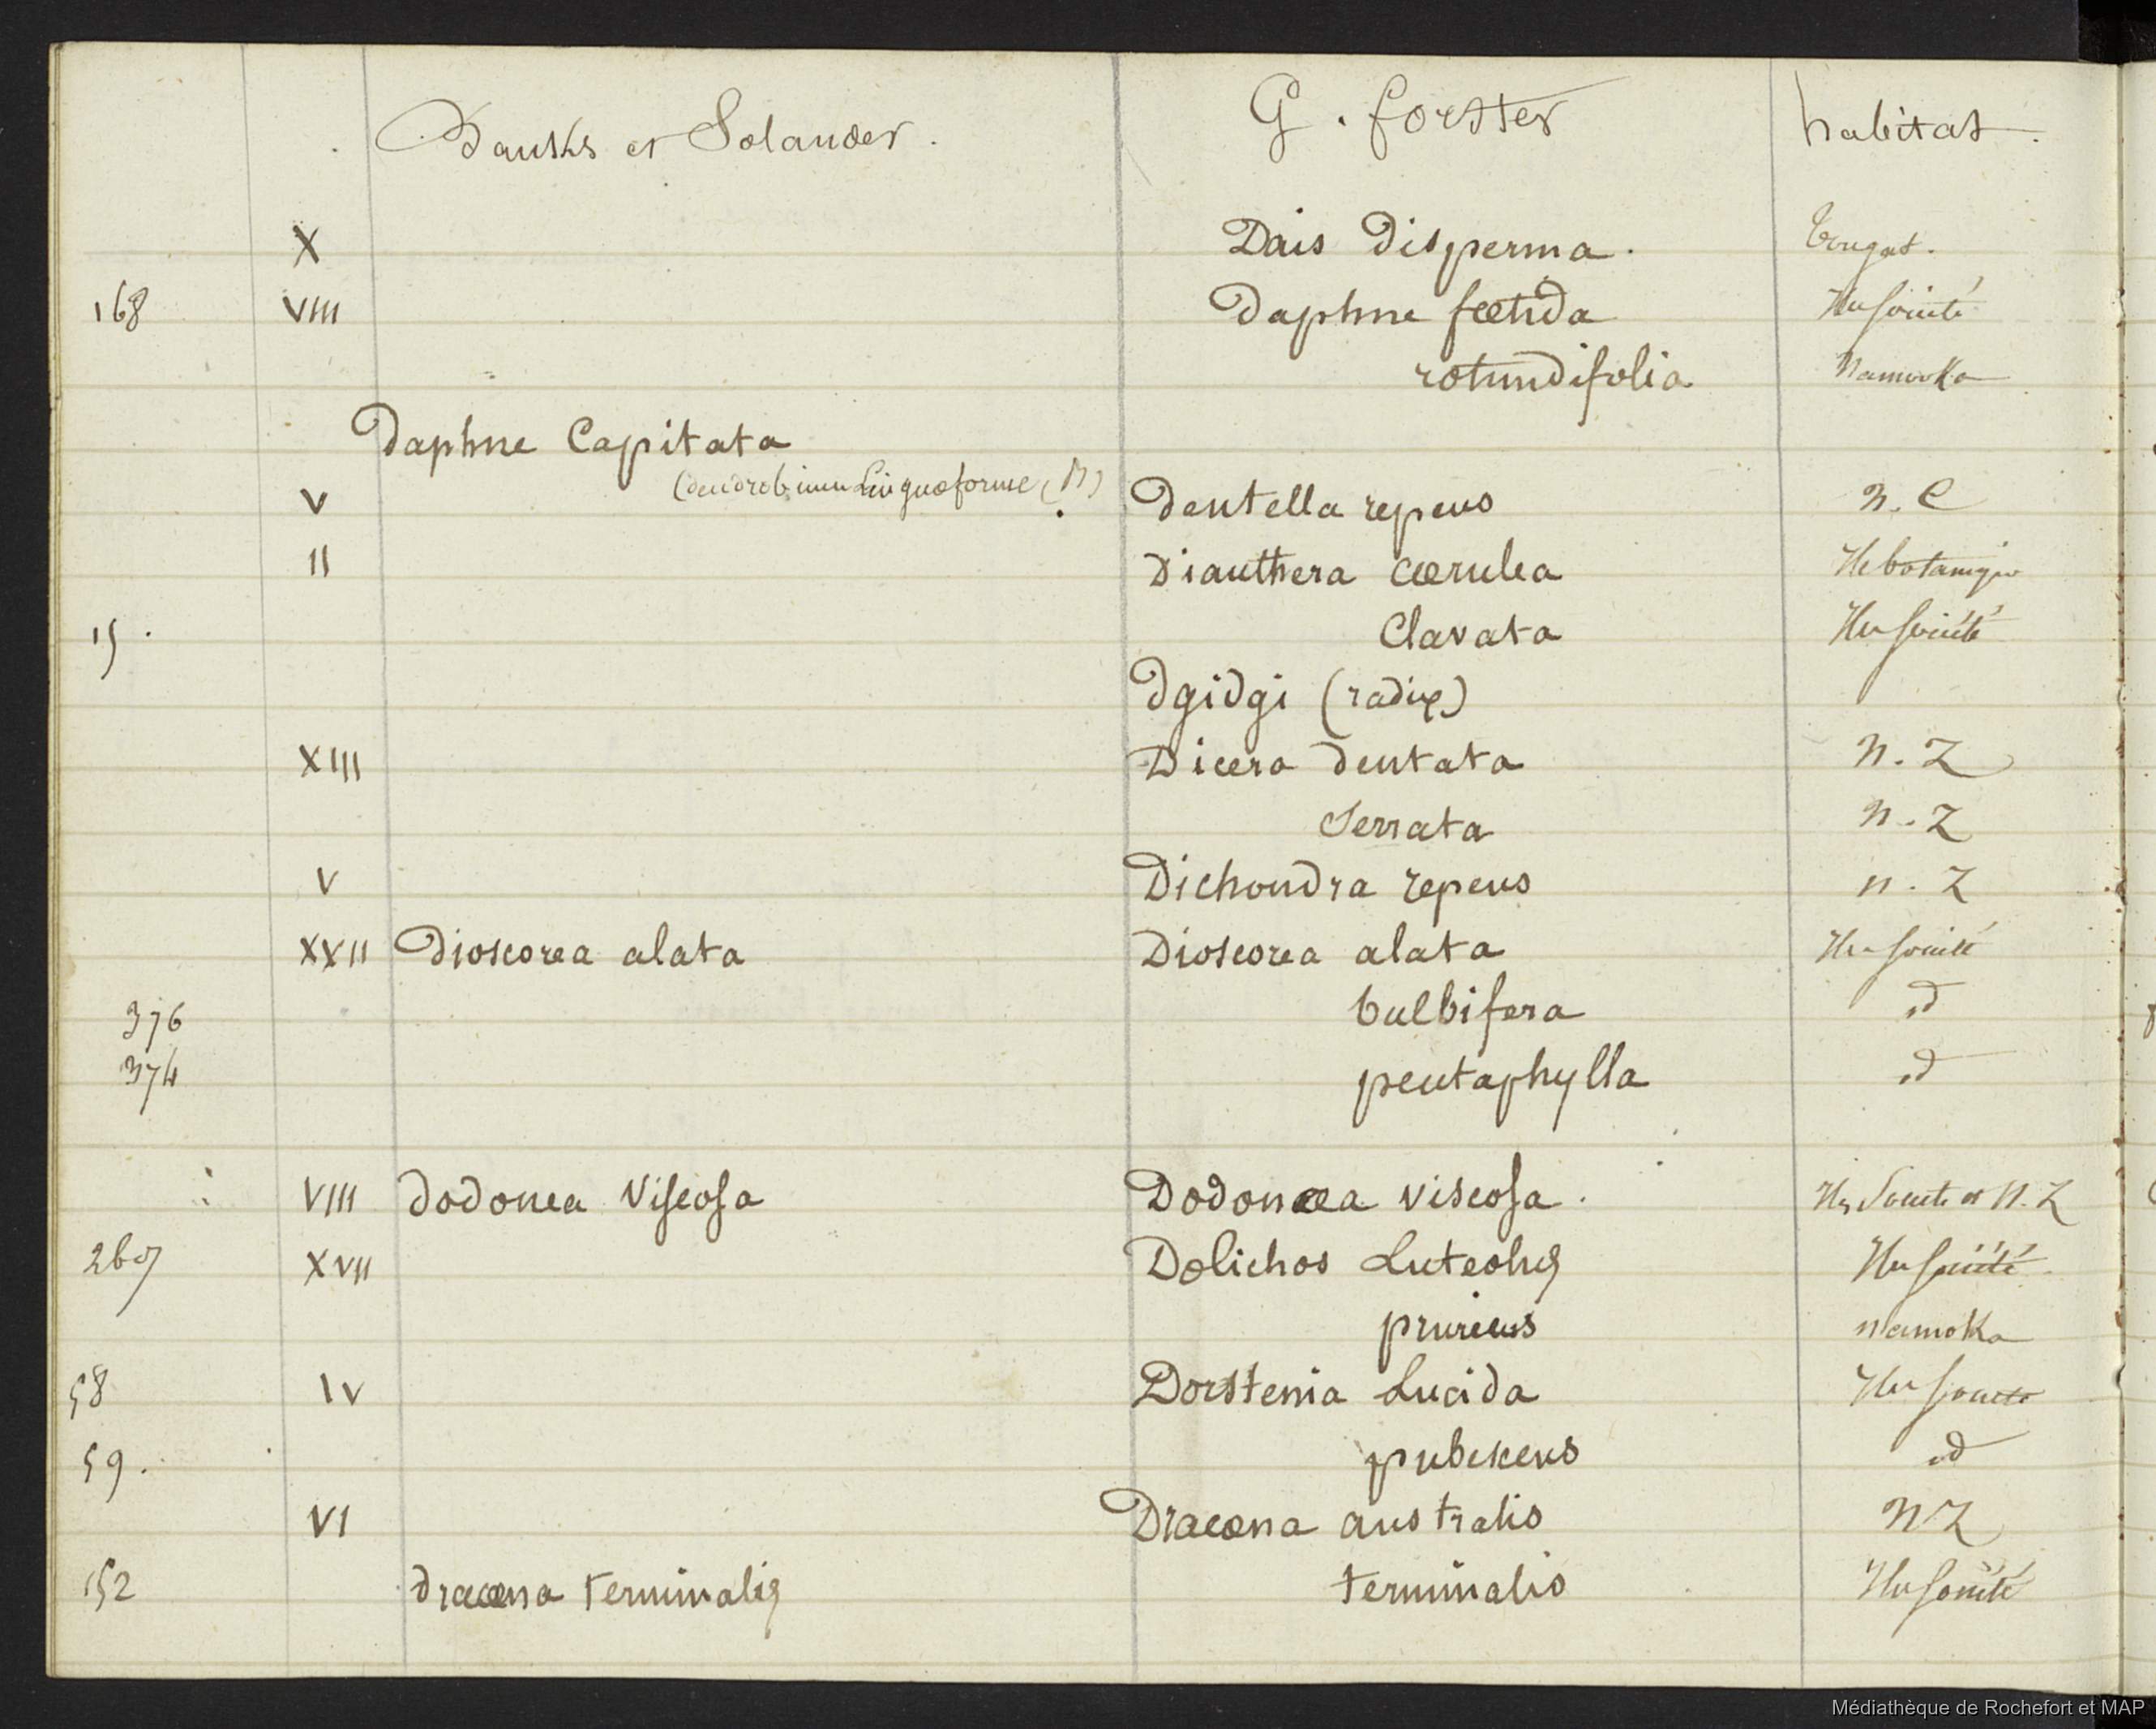 Banks et Solander. G. forster habitat.
X Dais Disperma. Tongat.
168 VIII Daphne fœtida Iles société
rotundifolia Namooka
Daphne Capitata
(dendrobium Linguæforme
V Dentella repens N. C
II Dianthera cœrulea Ile botanique
15. Clavata Iles société
Dgidgi (radix)
XIII Dicera dentata N. Z
Serrata N. Z
V Dichondra repens N. Z
XXII Dioscorea alata Dioscorea alata Iles société
376 bulbifera id
374 pentaphylla id
VIII dodonea Viscosa Dodonæa viscosa. Iles Société et N. Z
267 XVII Dolichos Luteolus Iles société
pruriens Namoka
58 IV Dorstenia Lucida Iles société
59. pubescens id
VI Dracæna australis NZ
152 dracæna terminalis terminalis Iles société
Médiathèque de Rochefort et MAP